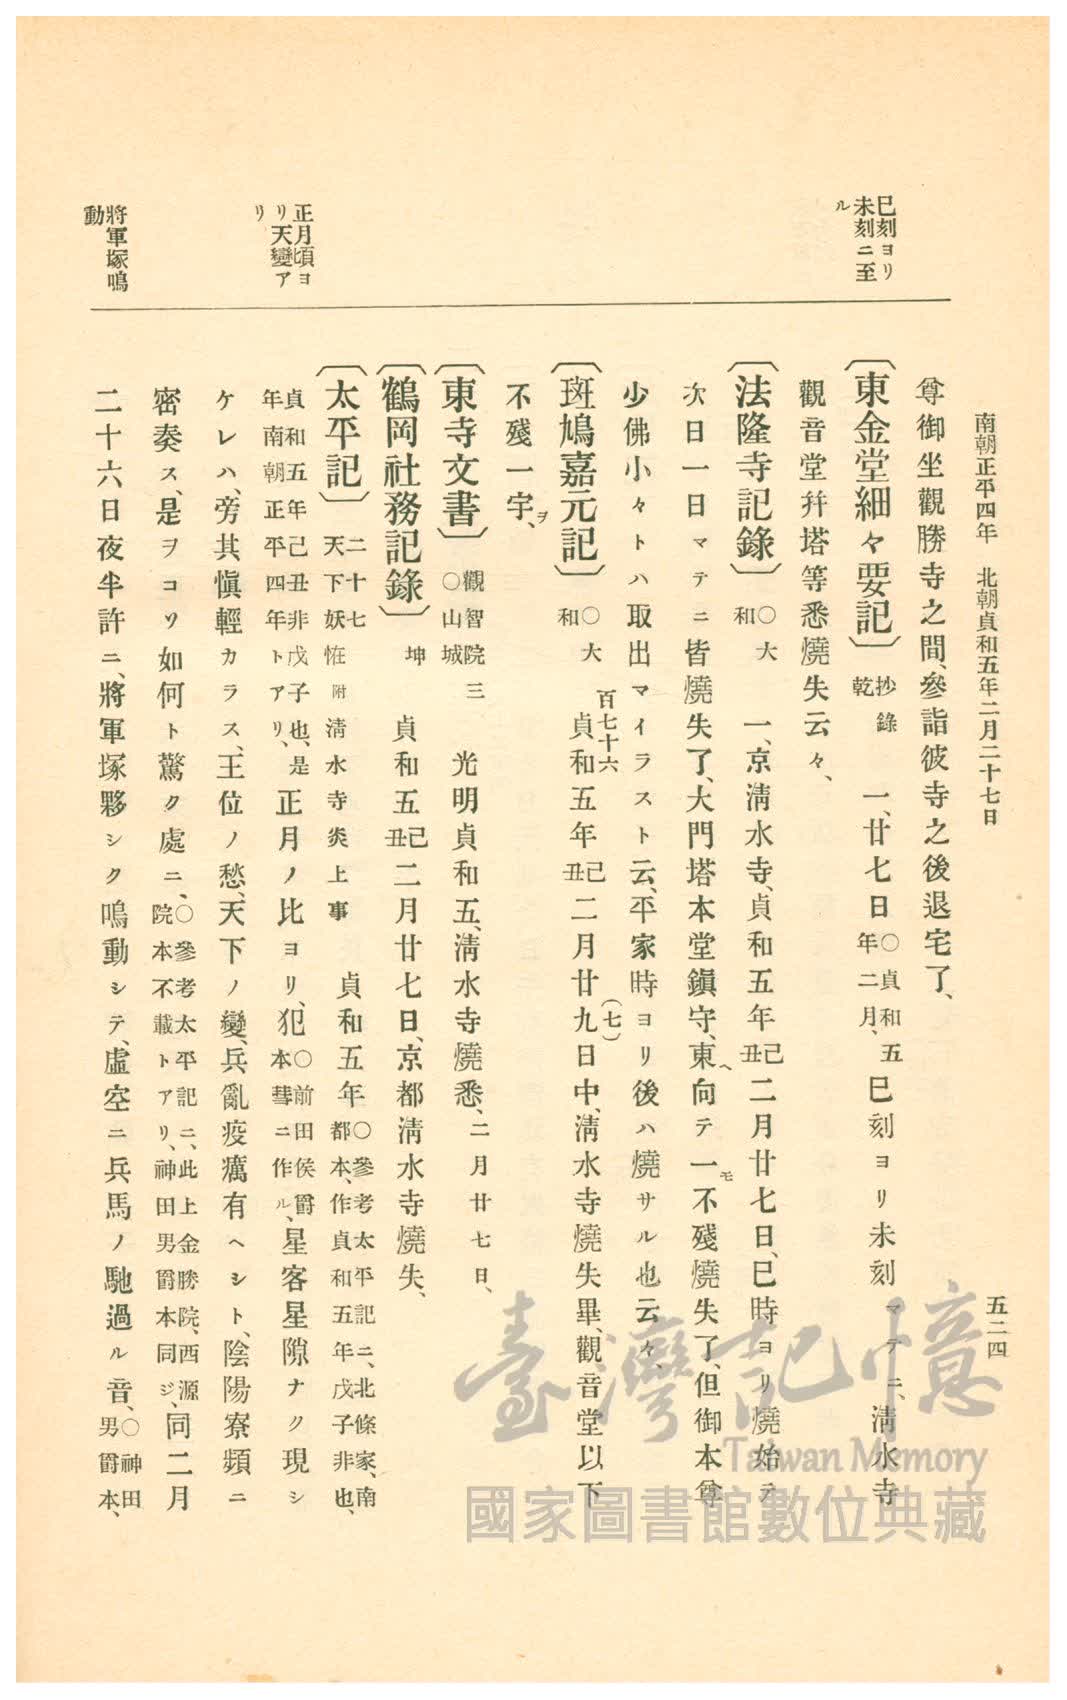 南朝正平四年　北朝貞和五年二月二十七日
五二四
巳刻ヨリ
未刻ニ至
ル
正月頃ヨ
リ天變ア
リ
將軍塚鳴
動
尊御坐觀勝寺之間、參詣彼寺之後退宅了、
〔東金堂細々要記〕抄錄乾　一、廿七日〇貞和五年二月、巳刻ヨリ未刻マテニ、清水寺
觀音堂幷塔等悉燒失云々、
〔法隆寺記錄〕〇大和　一、京清水寺、貞和五年己丑二月廿七日、巳時ヨリ燒始テ
次日一日マテニ皆燒失了、大門塔本堂鎭守、東へ向テ一モ不殘燒失了、但御本尊
少佛小々トハ取出マイラスト云、平家時ヨリ後ハ燒サル也云々、
〔斑鳩嘉元記〕〇大和　百七十六貞和五年己丑二月廿九(七)日中、清水寺燒失畢、觀音堂以下
不殘一宇ヲ、
〔東寺文書〕觀智院三〇山城　光明貞和五、清水寺燒悉、二月廿七日、
〔鶴岡社務記錄〕坤　貞和五己丑二月廿七日、京都清水寺燒失、
〔太平記〕二十七天下妖恠附清水寺炎上事　貞和五年〇參考太平記ニ、北條家、南都本、作貞和五年戊子非也、
貞和五年己丑非戊子也、是年南朝正平四年トアリ、正月ノ比ヨリ、犯〇前田侯爵本彗ニ作ル、星客星隙ナク現シ
ケレハ、旁其愼輕カラス、王位ノ愁、天下ノ變、兵亂疫癘有ヘシト、陰陽寮頻ニ
密奏ス、是ヲコソ如何ト驚ク處ニ、〇參考太平記ニ、此上金勝院、西源院本不載トアリ、神田男爵本同ジ、同二月
二十六日夜半許ニ、將軍塚夥シク鳴動シテ、虛空ニ兵馬ノ馳過ル音、〇神田男爵本、
臺灣記憶
Taiwan Memory
國家圖書館數位典藏